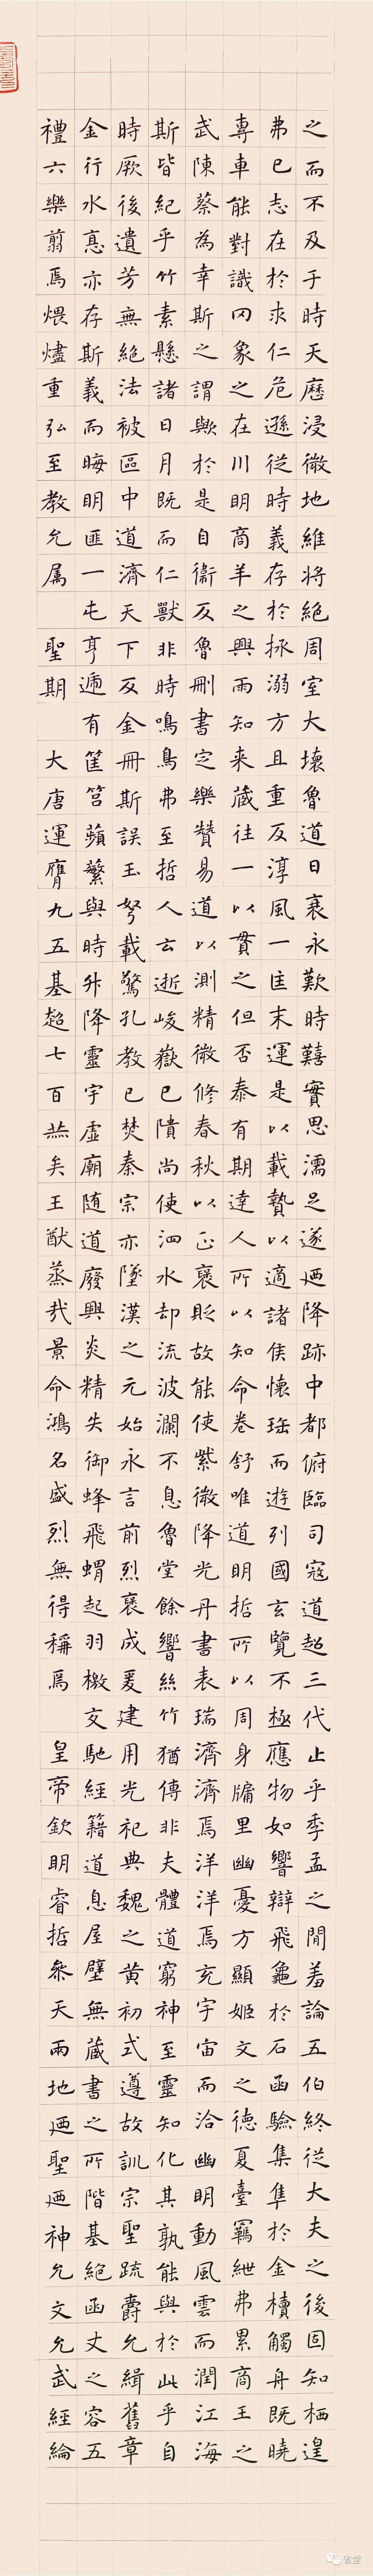 之而不及于時天歷浸微地維將絕周室大壞魯道日衰永歎時囏實思濡足遂迺降跡中都俯臨司寇道超三代止乎季孟之閒羞論五伯終從大夫之後固知栖遑
弗已志在於求仁危遜從時義存於拯溺方且重反淳風一匡末運是以載贄以適諸侯懷珤而遊列國玄覽不極應物如響辯飛龜於石函驗集隼於金櫝觸舟既曉
專車能對識罔象之在川明商羊之興雨知来藏往一以貫之但否泰有期達人所以知命卷舒唯道明哲所以周身牖里幽憂方顯姬文之德夏臺羈紲弗累商王之
武陳蔡為幸斯之謂歟於是自衛反魯刪書定樂贊易道以測精微修春秋以正褒貶故能使紫微降光丹書表瑞濟濟焉洋洋焉充宇宙而洽幽明動風雲而潤江海
斯皆紀乎竹素懸諸日月既而仁獸非時鳴鳥弗至哲人云逝峻嶽已隤尚使泗水却流波瀾不息魯堂餘響絲竹猶傳非夫體道窮神至靈知化其孰能與於此乎自
時厥後遺芳無絕法被區中道濟天下及金冊斯誤玉弩載驚孔教已焚秦宗亦墜漢之元始永言前烈褒成爰建用光祀典魏之黄初式遵故訓宗聖疏爵允緝舊章
金行水悳亦存斯義而晦明匪一屯亨遞有筐筥蘋蘩與時升降靈宇虛廟随道廢興炎精失御蜂飛蝟起羽檄交馳經籍道息屋壁無藏書之所階基絕函丈之容五
禮六樂翦焉煨燼重弘至教允属 聖期 大唐運膺九五基超七百赫矣王猷蒸哉景命鴻名盛烈無得稱焉 皇帝欽明睿哲參天兩地迺聖迺神允文允武經綸
省堂